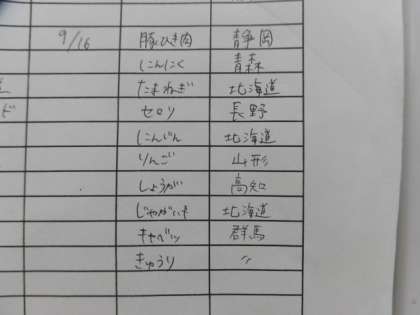 9/16 豚ひき肉 静岡
にんにく 青森
たまねぎ 北海道
セロリ 長野
にんじん 北海道
りんご 山形
しょうが 高知
じゃがいも 北海道
キャベツ 群馬
きゅうり 〃